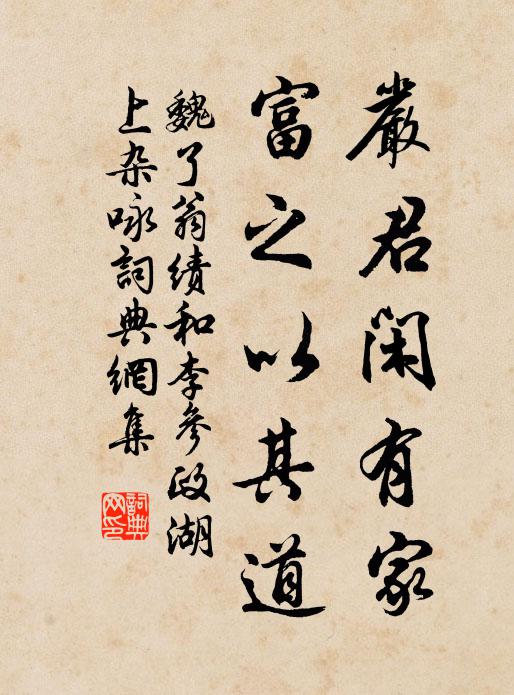 嚴君閑有家
富之以其道
魏了翁續和李參政湖
上杂咏詞典網集
詞典
网印